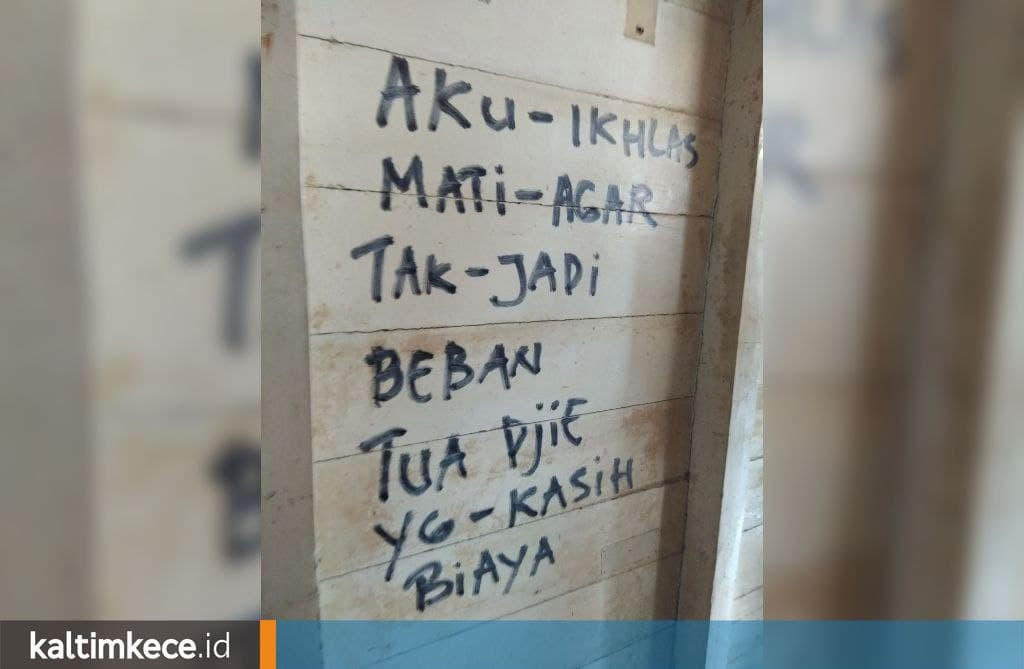 AKU-IKHLAS
MATi-AGAR
TAK-JADi
BEBAN
TUA DjiE
YG-KASiH
BiAYA
kaltimkece.id